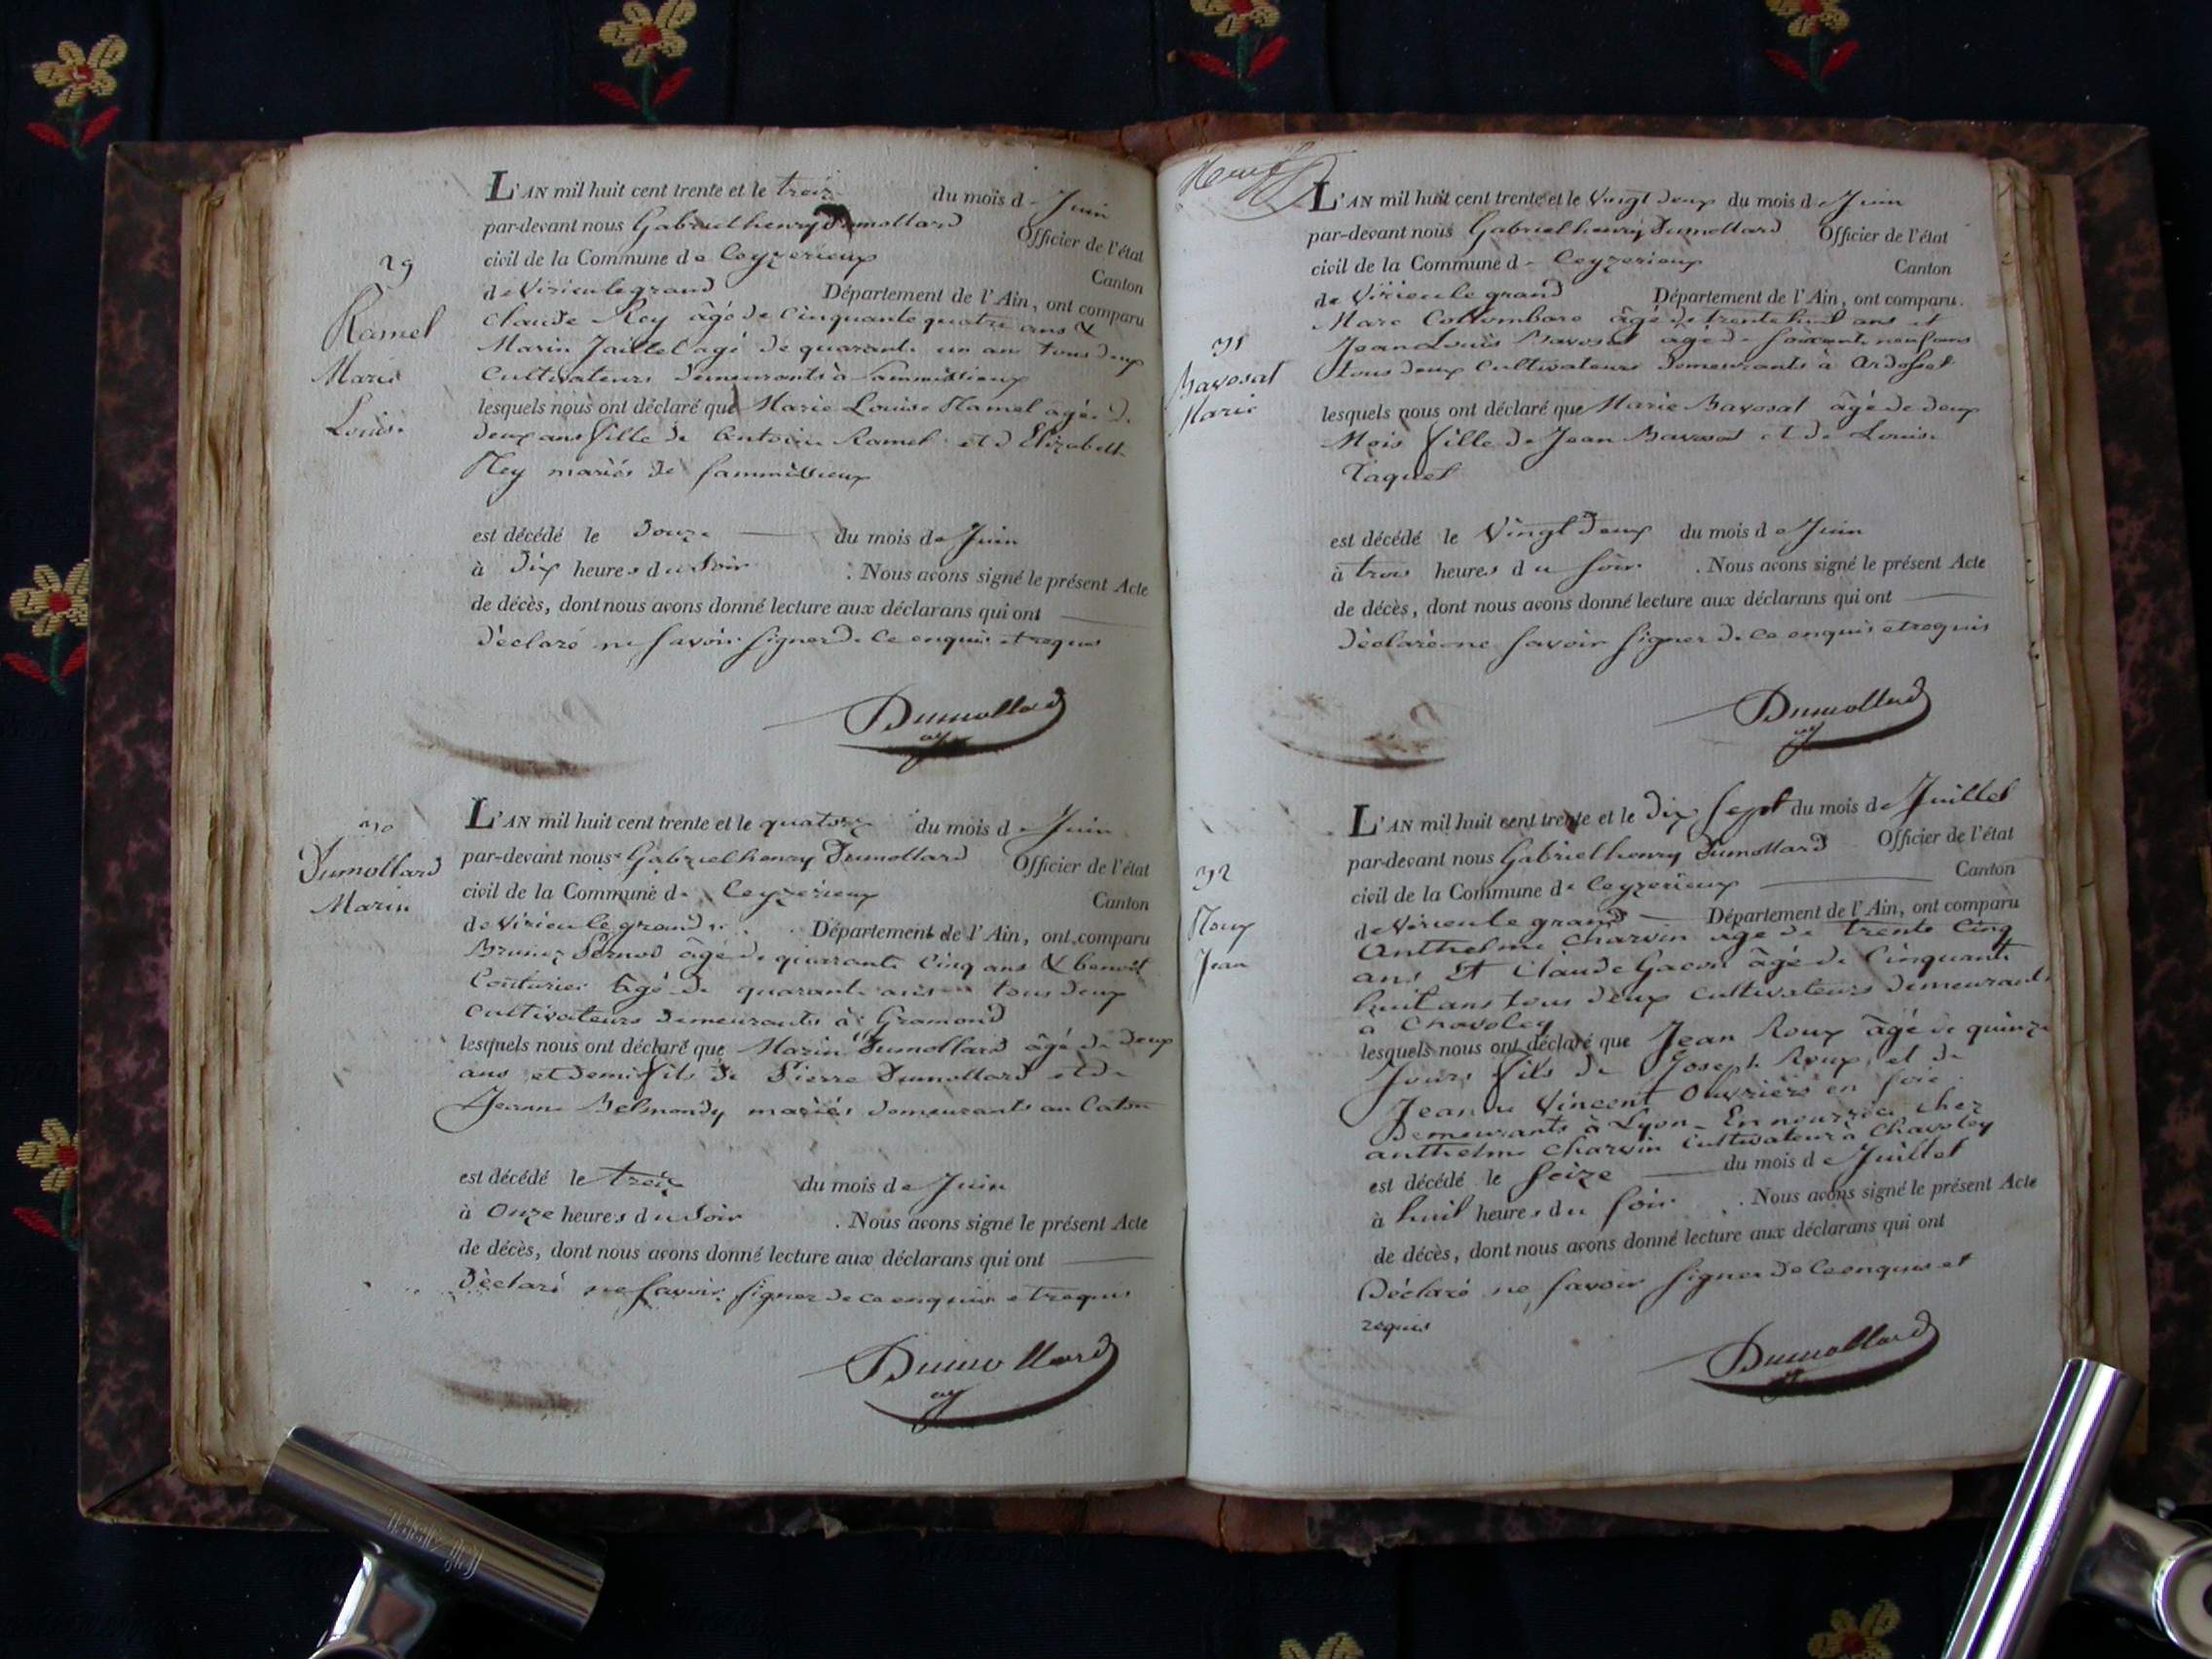 29
Ramel
Marie
Louise
L'AN mil huit cent trente et le treize du mois de Juin
par-devant nous Gabriel henry Dumollard Officier de l'état
civil de la Commune de Ceyzerieux Canton
de Virieu le grand Département de l'Ain, ont comparu
Claude Rey âgé de Cinquante quatre ans &
Marin Jaillet agé de quarante un ans tous deux
Cultivateurs demeurants à Sammissieux
lesquels nous ont déclaré que Marie Louise Ramel agée de
deux ans fille de Antoine Ramel et d Elizabeth
Rey mariés de Sammissieux
est décédé le Douze du mois de Juin
à Dix heures du Soir . Nous avons signé le présent Acte
de décès, dont nous avons donné lecture aux déclarans qui ont
déclaré ne savoir signer de ce enquis et requis
Dumollard
30
Dumollard
Marin
L'AN mil huit cent trente et le quatorze du mois de Juin
par-devant nous Gabriel henry Dumollard Officier de l'état
civil de la Commune de Ceyzerieux Canton
de Virieu le grand Département de l'Ain, ont comparu
âgé de quarante Cinq ans & benoit
Couturier âgé de quarante ans tous deux
cultivateurs demeurants à Gramond
lesquels nous ont déclaré que Marin Dumollard âgé de deux
ans et demi fils de Pierre Dumollard et de
Jeanne Belmondy mariés demeurants au Caton
est décédé le treize du mois de Juin
à Onze heures du Soir . Nous avons signé le présent Acte
de décès, dont nous avons donné lecture aux déclarans qui ont
déclaré ne savoir signer de ce enquis et requis
Dumollard
Neuf
31
Bavosat
Marie
L'AN mil huit cent trente et le Vingt deux du mois de Juin
par-devant nous Gabriel henry Dumollard Officier de l'état
civil de la Commune de Ceyzerieux Canton
de Virieu le grand Département de l'Ain, ont comparu
Marc Collombare âgé de trente huit ans et
Jean Louis Bavosat agé de soixante neuf ans
tous deux Cultivateurs demeurants à Ardosset
lesquels nous ont déclaré que Marie Bavosat âgé de deux
Mois fille de Jean Bavosat et de Louise
Taquet
est décédé le Vingt Deux du mois de Juin
à trois heures du soir . Nous avons signé le présent Acte
de décès, dont nous avons donné lecture aux déclarans qui ont
déclaré ne savoir signer de ce enquis et requis
Dumollard
32
Roux
Jean
L'AN mil huit cent trente et le Dix sept du mois de Juillet
par-devant nous Gabriel henry Dumollard Officier de l'état
civil de la Commune de Ceyzerieux Canton
de Virieu le grand Département de l'Ain, ont comparu
Anthelme Charvin âgé de trente Cinq
ans et Claude Gacon âgé de Cinquante
huit ans tous deux cultivateurs demeurants
a Chavoley
lesquels nous ont déclaré que Jean Roux âgé de quinze
Jours fils de Joseph Roux et de
Jeanne Vincent Ouvriers en soie
Demeurants à Lyon En nourrice chez
anthelme Charvin Cultivateur à Chavoley
est décédé le Seize du mois de Juillet
à huit heures du soir . Nous avons signé le présent Acte
de décès, dont nous avons donné lecture aux déclarans qui ont
Déclaré ne savoir signer de ce enquis et
requis
Dumollard